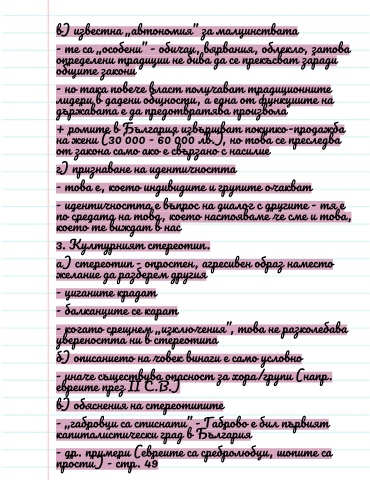 в) известна „автономия" за малцинствата
- те са „особени" - обичаи, вярвания, облекло, затова
определени традиции не бива да се прекъсват заради
общите закони
- но така повече власт получават традиционните
лидери в дадени общности, а една от функциите на
държавата е да предотвратява произвола
+ ромите в България извършват покупко-продажба
на жени (30 000 - 60 000 лв.), но това се преследва
от закона само ако е свързано с насилие
г) признаване на идентичността
- това е, което индивидите и групите очакват
- идентичността е въпрос на диалог с другите - тя е
по средата на това, което настояваме че сме и това,
което те виждат в нас
3. Културният стереотип.
а) стереотип - опростен, агресивен образ наместо
желание да разберем другия
- циганите крадат
- балканците се карат
- когато срещнем „изключения", това не разколебава
увереността ни в стереотипа
б) описанието на човек винаги е само условно
- иначе съществува опасност за хора/групи (напр.
евреите през II С.В.)
в) обяснения на стереотипите
- „габровци са стиснати" - Габрово е бил първият
капиталистически град в България
- др. примери (евреите са сребролюбци, шопите са
прости) - стр. 49